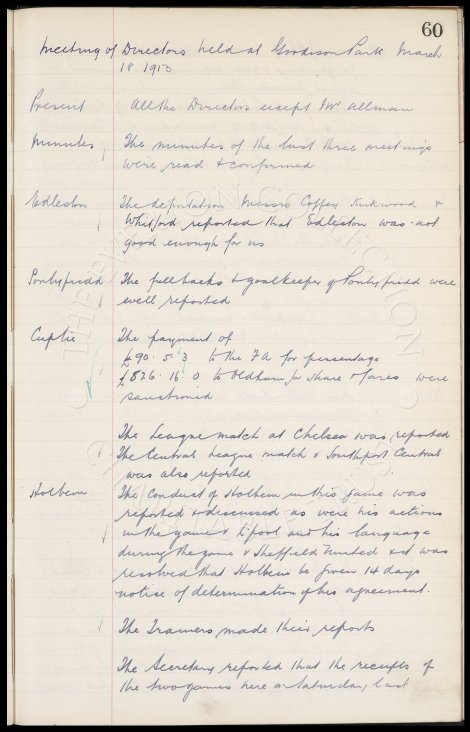 60
Meeting of Directors held at Goodison Park March
18 1913
Present All the Directors except Mr Allman
Minutes The minutes of the last three meetings
were read & confirmed
Edleston The deputation Messrs Coffey Kirkwood &
Whitford reported that Edleston was not
good enough for us
Pontypridd The fullbacks & goalkeeper of Pontypridd were
well reported
Cuptie The payment of
£90. 5. 3 to the FA for percentage
£826. 16. 0 to Oldham for share & fares were
sanctioned
The League match at Chelsea was reported
The Central League match v Southport Central
was also reported
Holbem The conduct of Holbem in this game was
reported & discussed as were his actions
in the game v L'pool and his language
during the game v Sheffield United & it was
resolved that Holbem be given 14 days
notice of determination of his agreement.
The Trainers made their reports
The Secretary reported that the receipts of
the two games here on Saturday last
THE EVERTON COLLECTION